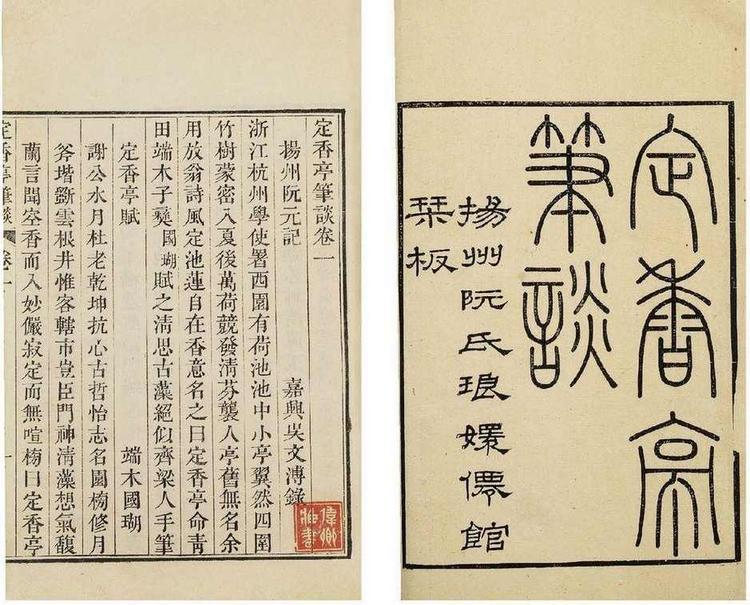 定香亭
筆談
揚州阮氏琅嬛僊館
栞板
定香亭筆談卷一
揚州阮元記 嘉興吳文溥錄
浙江杭州學使署西園有荷池池中小亭翼然四圍
竹樹蒙密入夏後萬荷競發清芬襲人亭舊無名余
用放翁詩風定池蓮自在香意名之曰定香亭命青
田端木子彝國瑚賦之清思古藻絕似齊梁人手筆
定香亭賦 端木國瑚
謝公水月杜老乾坤抗心古哲怡志名園㮄修月
斧堦斷雲根井惟客轄市豈臣門神清藻想氣馥
蘭言聞空香而入妙儼寂定而無喧㮄曰定香亭
定香亭筆談 卷一 一